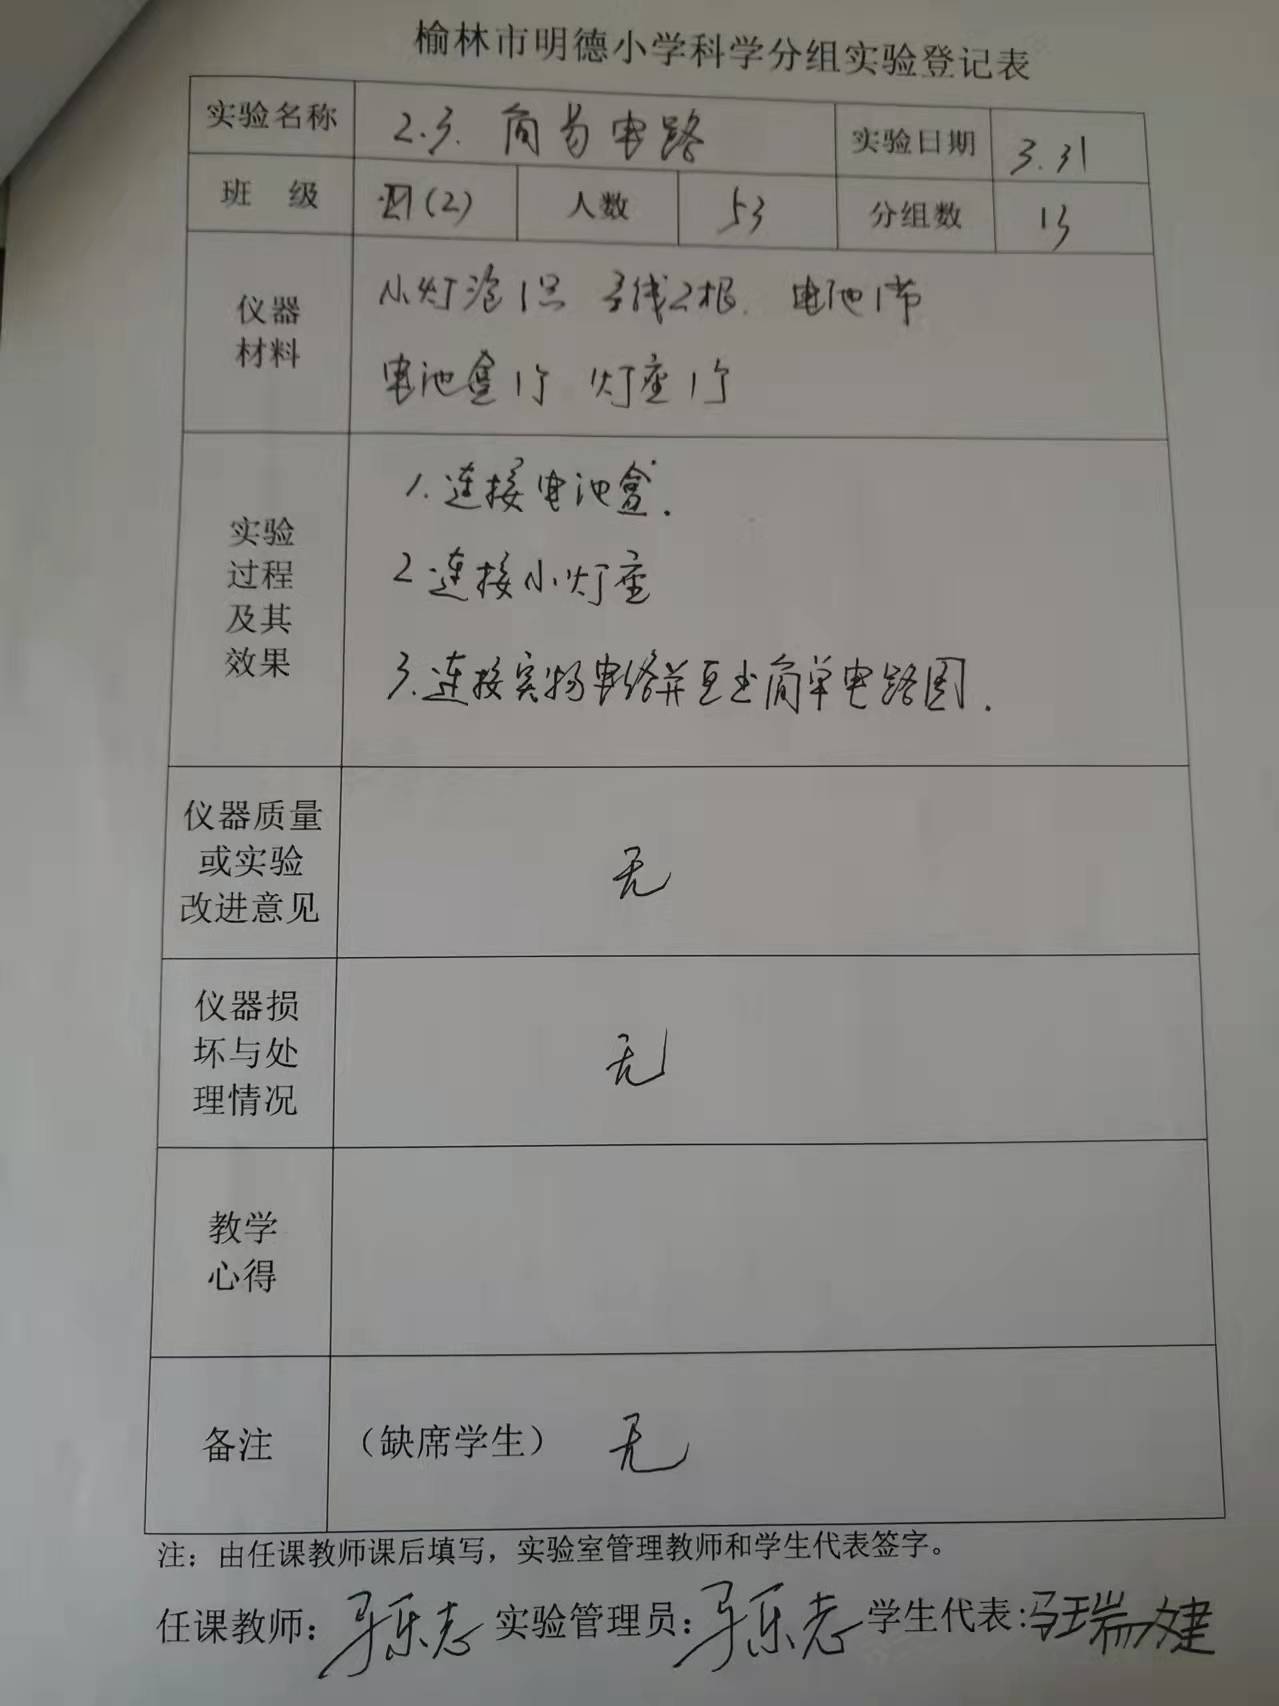 榆林市明德小学科学分组实验登记表
实验名称 2.3. 简易电路 实验日期 3.31
班 级 四(2) 人数 53 分组数 13
仪器
材料
小灯泡1只 导线2根. 电池1节
电池盒1个 灯座1个
实验
过程
及其
效果
1.连接电池盒.
2.连接小灯座
3.连接实物电路并画出简单电路图.
仪器质量
或实验
改进意见
无
仪器损
坏与处
理情况
无
教学
心得
备注 (缺席学生) 无
注：由任课教师课后填写，实验室管理教师和学生代表签字。
任课教师: 实验管理员: 学生代表: